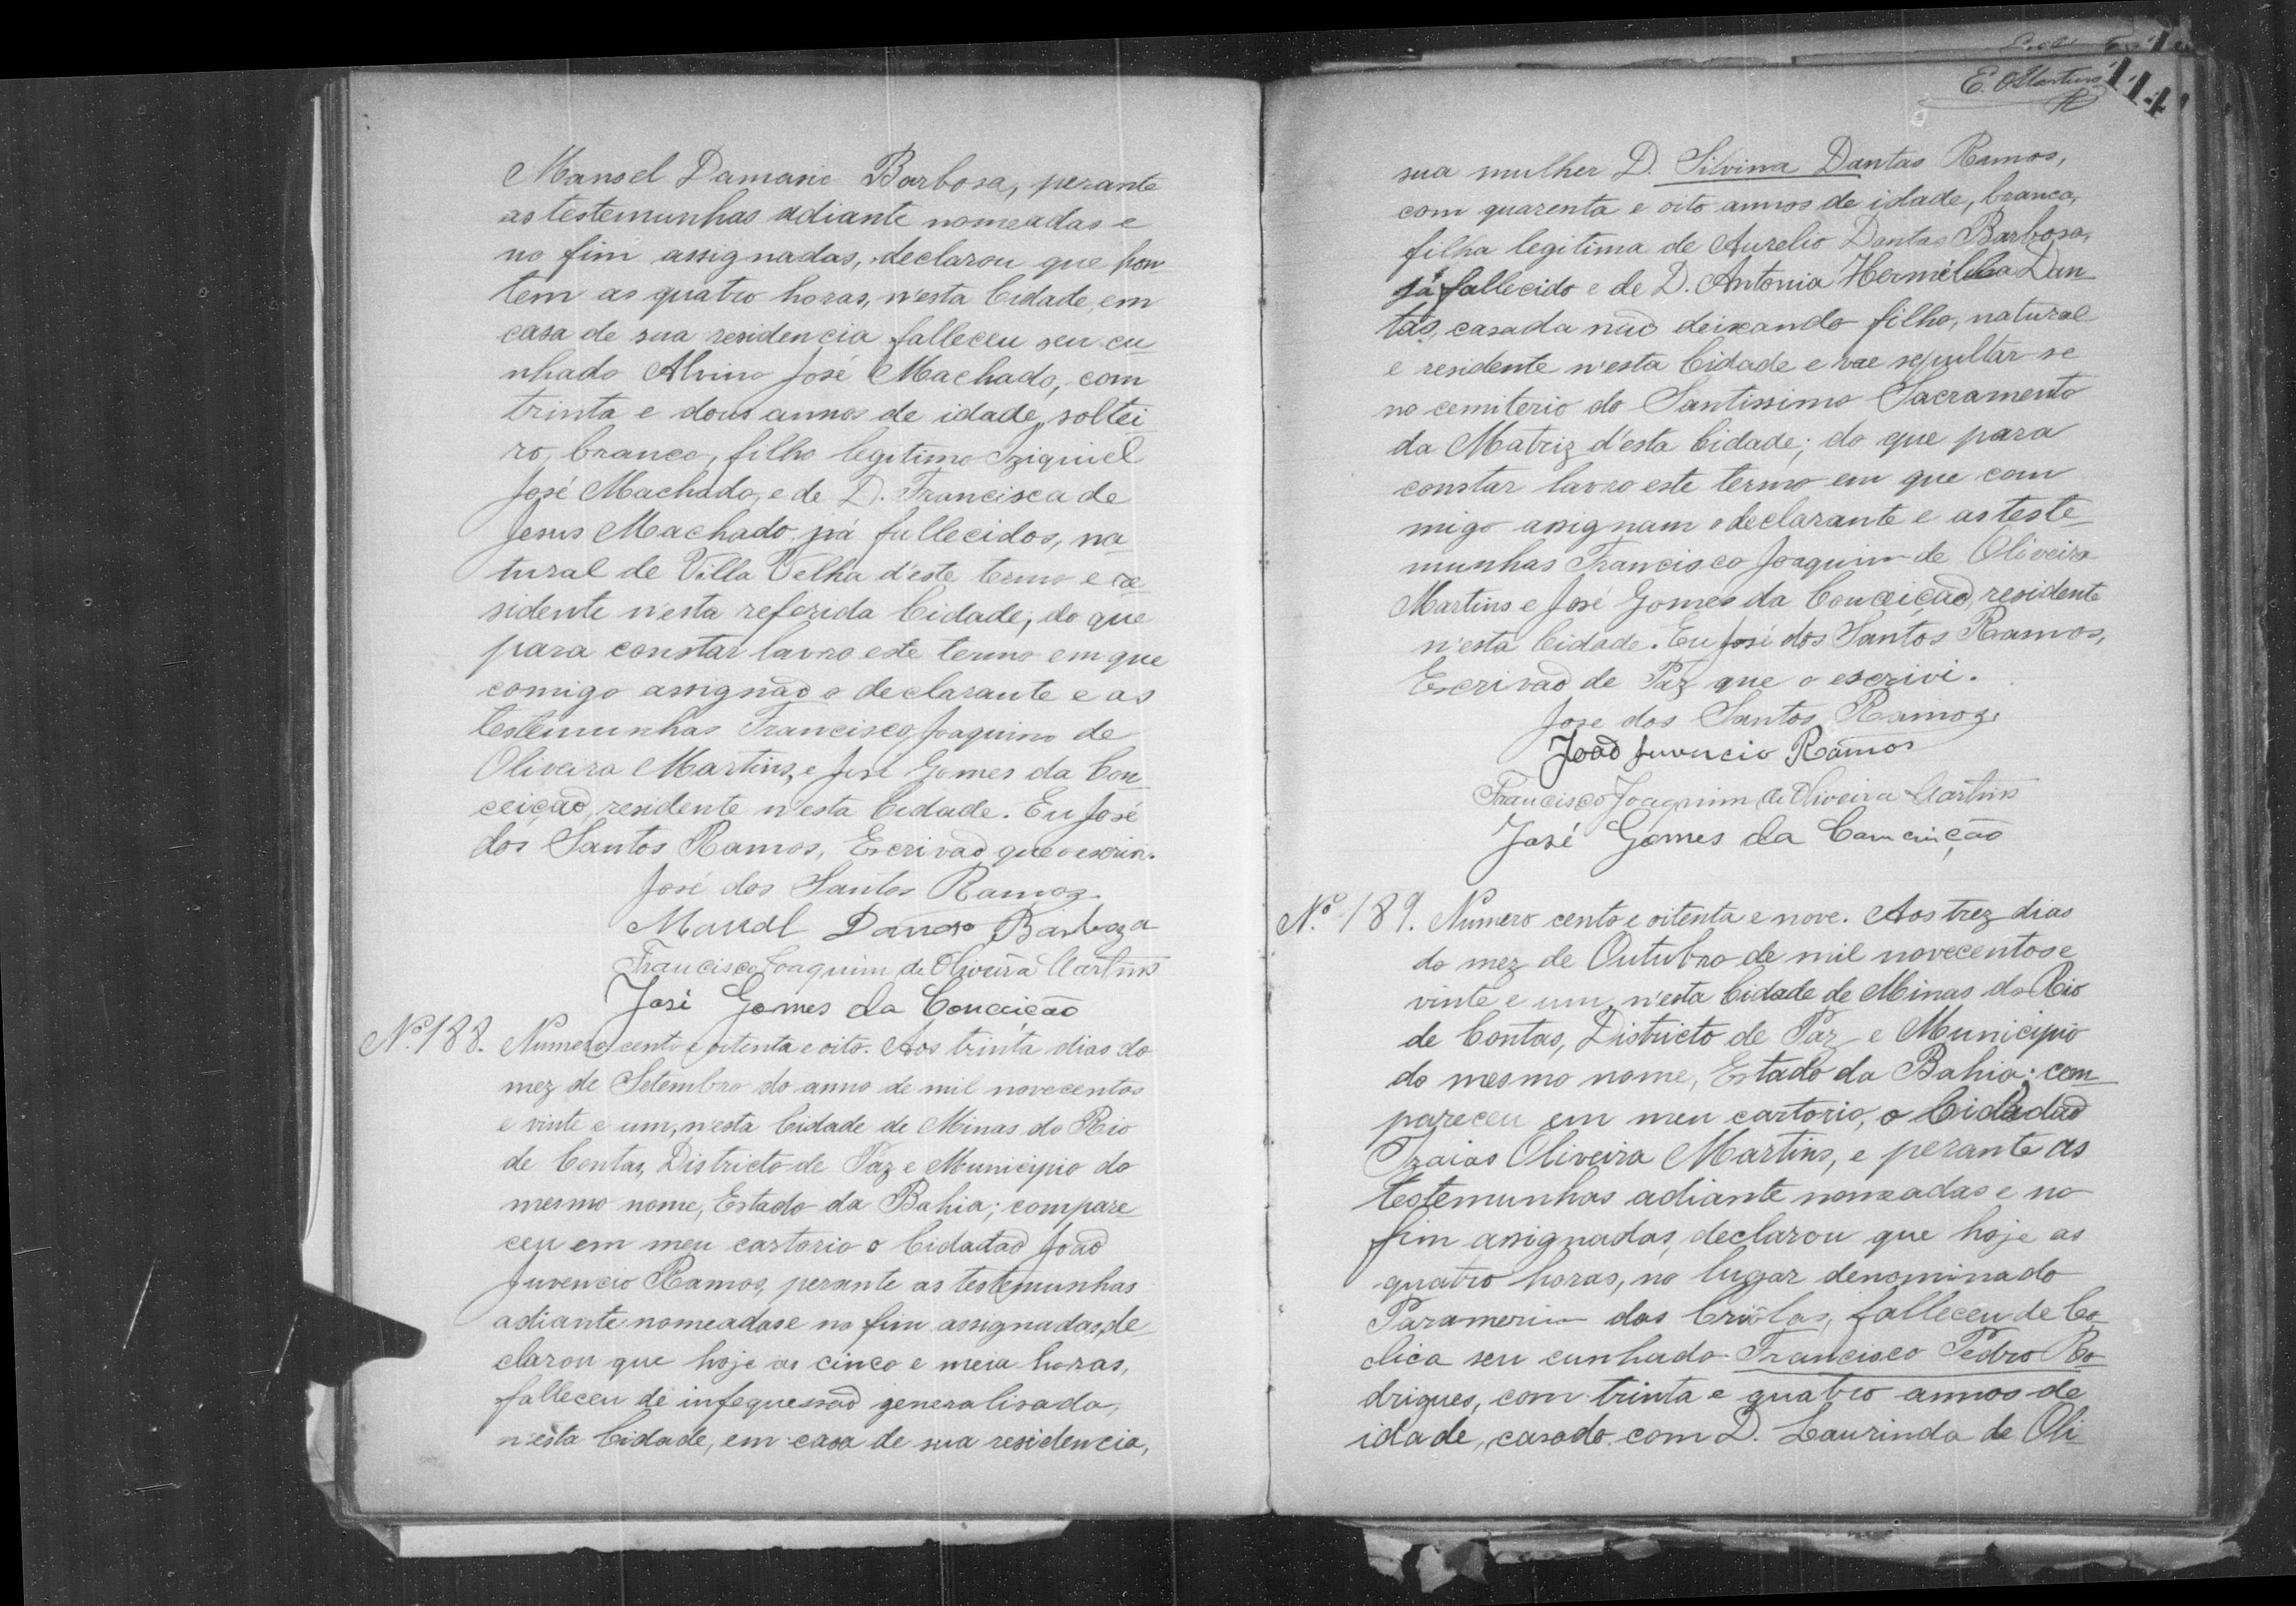 Manoel Damasio Barbosa, perante
as testemunhas adiante nomeadas e
no fim assignadas, declarou que hon
tem as quatro horas, n'esta Cidade, em
casa de sua residencia falleceu seu cu
nhado Alvino José Machado, com
trinta e dous annos de idade, soltei
ro, branco, filho legitimo Iziquiel
José Machado, e de D. Francisca de
Jesus Machado já fallecidos, na
tural de Villa Velha d'este termo e re
sidente n'esta referida Cidade; do que
para constar lavro este termo em que
comigo assignão o declarante e as
testemunhas Francisco Joaquim de
Oliveira Martins, e José Gomes da Con
ceição, residente n'esta Cidade. Eu José
dos Santos Ramos, Escrivão que o escrivi.
José dos Santos Ramos.
Manoel Barboza
Francisco Joaquim de Oliveira Martins
José Gomes da Conceição
Nº 188. Numero cento e oitenta e oito. Aos trinta dias do
mez de Setembro do anno de mil novecentos
e vinte e um, n'esta Cidade de Minas do Rio
de Contas, Districto de Paz e Municipio do
mesmo nome, Estado da Bahia; compare
ceu em meu cartorio o Cidadão João
Juvencio Ramos, perante as testemunhas
adiante nomeadas e no fim assignadas, de
clarou que hoje as cinco e meia horas,
falleceu de generalisada,
n'esta Cidade, em casa de sua residencia,
E. OMartins
114
sua mulher D. Silvina Dantas Ramos,
com quarenta e oito annos de idade, branca,
filha legitima de Aurelio Dantas Barbosa,
já fallecido e de D. Antonia Dan
tas, casada não deixando filho, natural
e residente n'esta Cidade e vae sepultar-se
no cemiterio do Santissimo Sacramento
da Matriz d'esta Cidade; do que para
constar lavro este termo em que com
migo assignam o declarante e as teste
munhas Francisco Joaquim de Oliveira
Martins e José Gomes da Conceição, residente
n'esta Cidade. Eu José dos Santos Ramos,
Escrivão de Paz que o escrivi.
José dos Santos Ramos.
João Juvencio Ramos
Francisco Joaquim de Oliveira Martins
José Gomes da Conceição
Nº 189. Numero cento e oitenta e nove. Aos trez dias
do mez de Outubro de mil novecentos e
vinte e um, n'esta Cidade de Minas do Rio
de Contas, Districto de Paz e Municipio
do mesmo nome, Estado da Bahia; com
pareceu em meu cartorio, o Cidadão
Izaias Oliveira Martins, e perante as
testemunhas adiante nomeadas e no
fim assignadas, declarou que hoje as
quatro horas, no lugar denominado
Paramerim das Criôlas, falleceu de Co
lica seu cunhado Francisco Pedro Ro
drigues, com trinta e quatro annos de
idade, casado com D. Laurinda de Oli